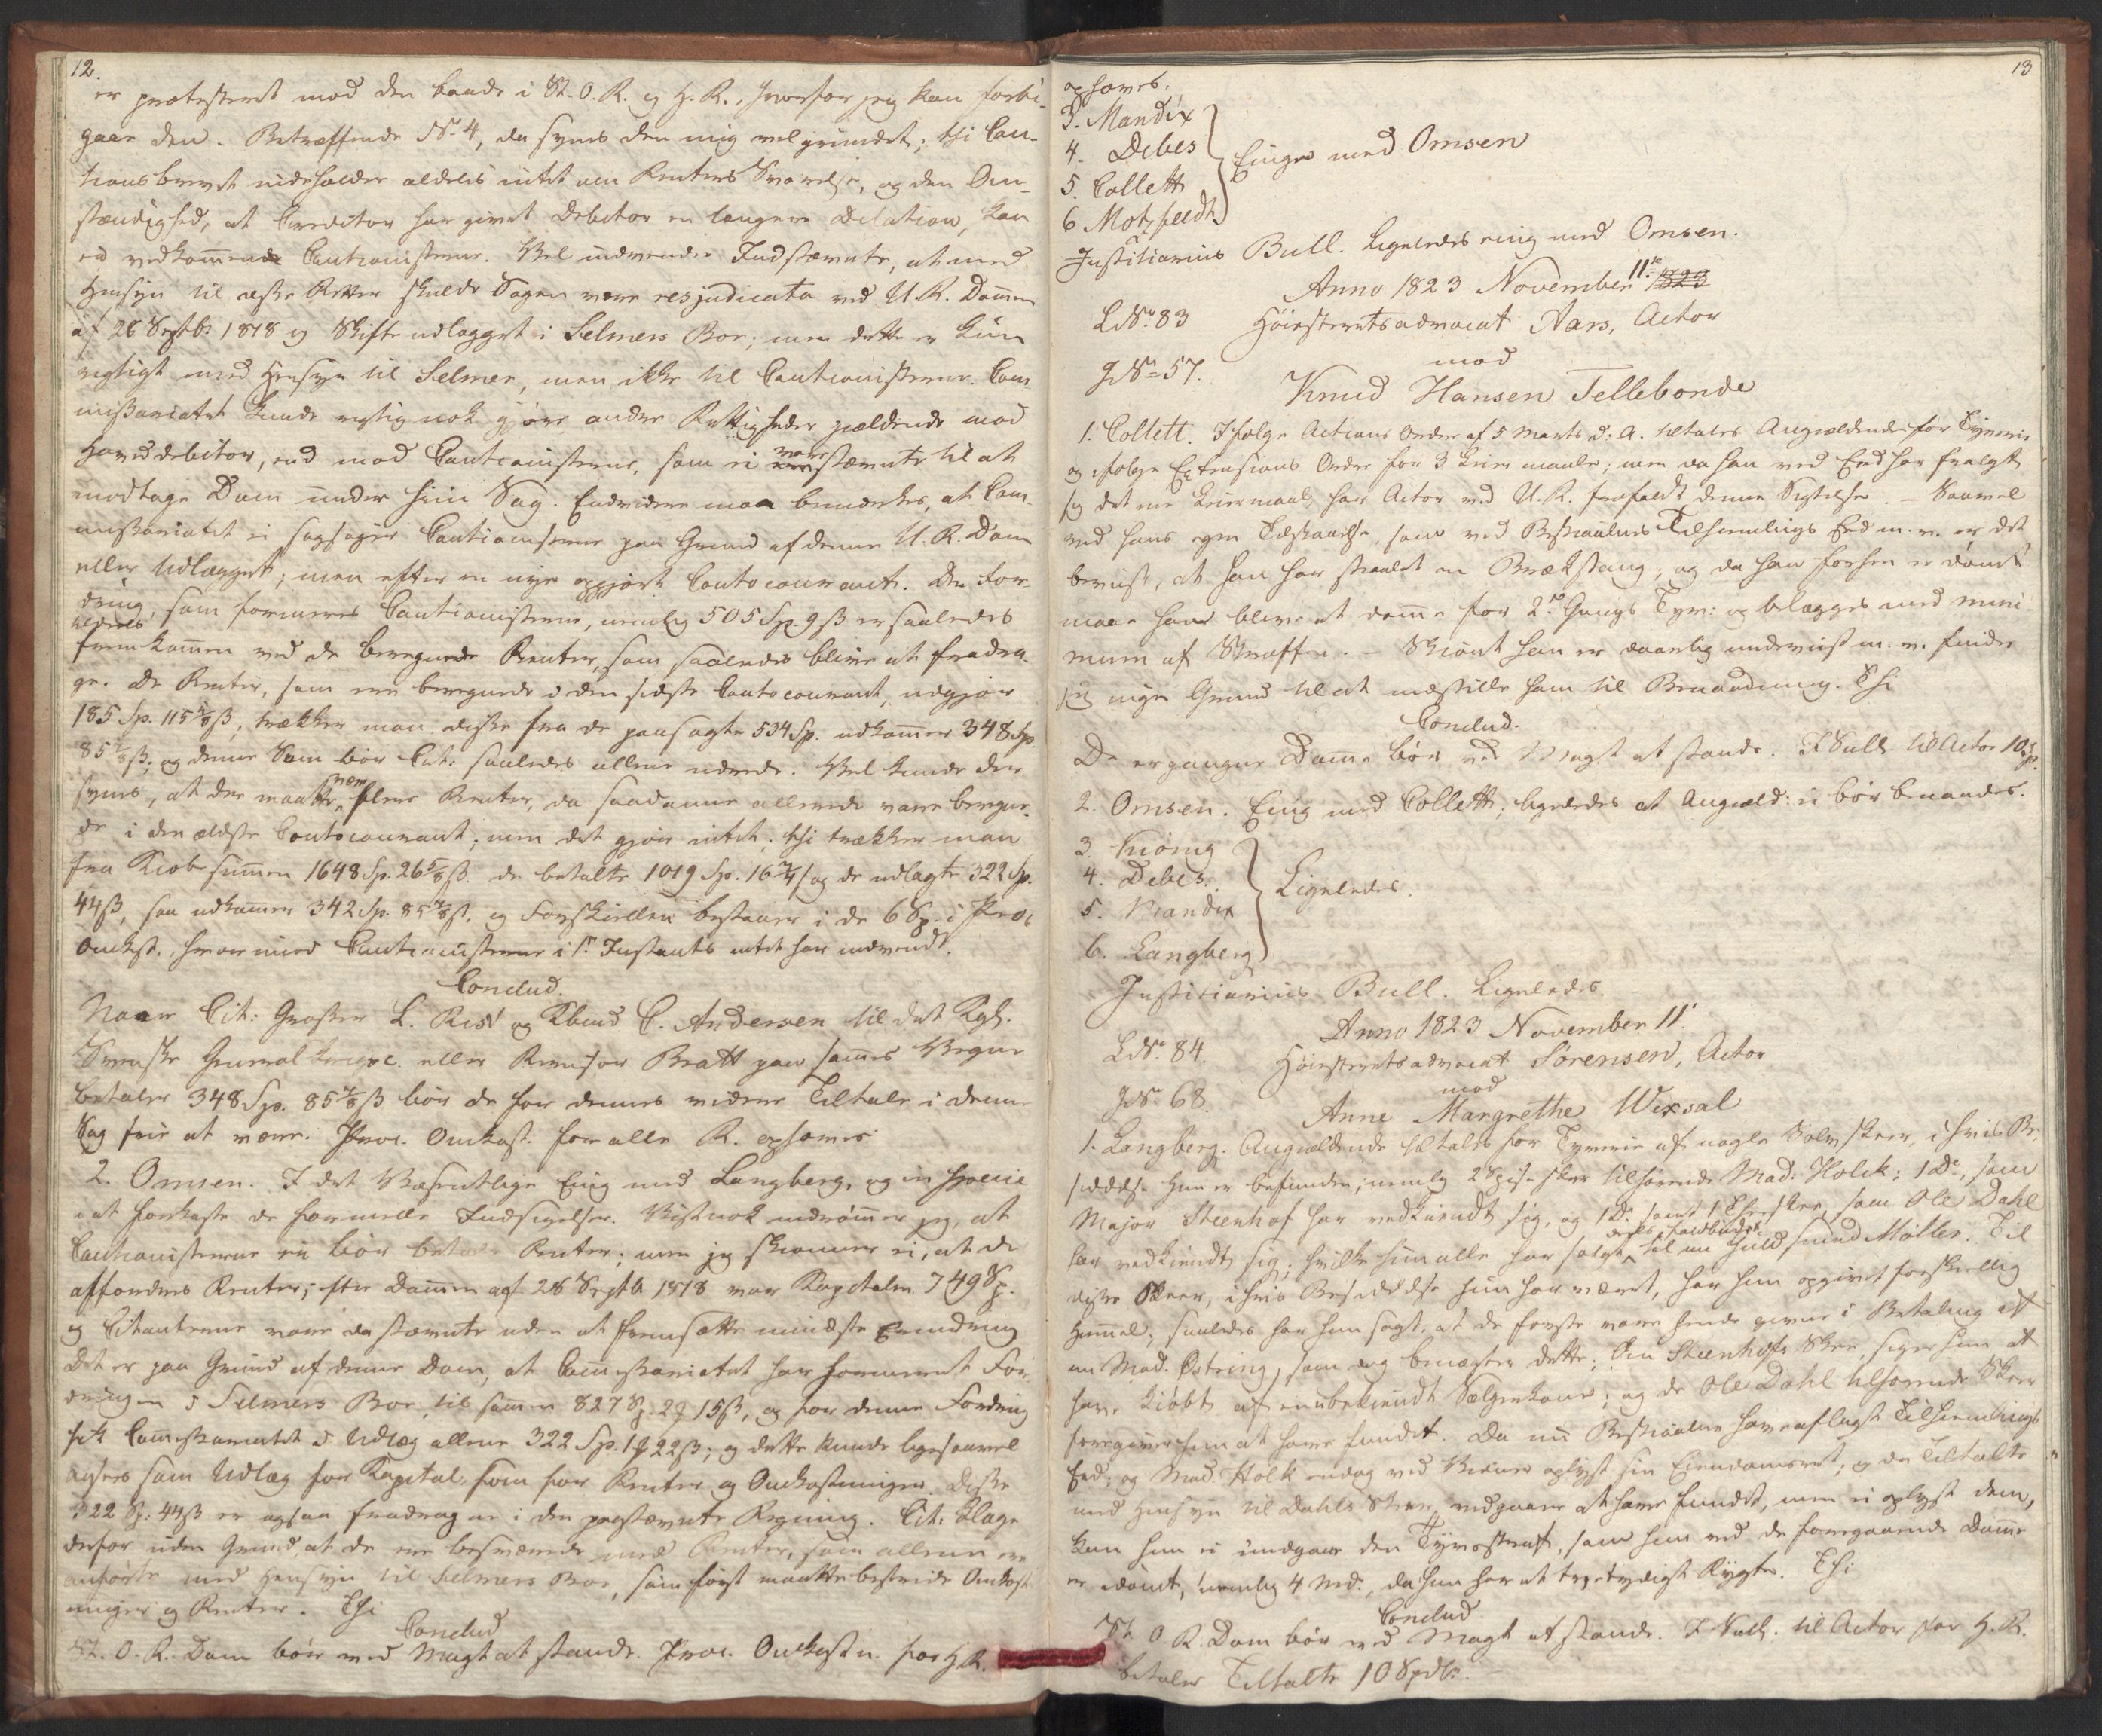 12.
er protesteret mod den baade i St. O. R. og H. R., hvorfor jeg kan forbi-
gaae den. Betræffende No 4, da synes den mig velgrundet; thi Cau-
tionsbrevet indeholder aldeles intet om Renters Svarelse, og den Om-
stændighed, at Creditor har givet Debitor en længere Dilation, kan
ei vedkomme Cautionisterne. Vel indvender Indstævnte, at med
Hensyn til disse Retter skulde Sagen være res judicata ved U. R. Dommen
af 28 Septbr 1818 og Skifteudlægget i Selmers Boe; men dette er kun
rigtigt med Hensyn til Selmer, men ikke til Cautionisterne. Com-
missariatet kunde rigtig nok gjøre andre Rettigheder gjældende mod
Hoveddebitor, end mod Cautionisterne, som ei vare stævnte til at
modtage Dom under hiin Sag. Endvidere maa bemærkes, at Com-
missariatet ei sagsøger Cautionisterne paa Grund af denne U. R. Dom
eller Udlægget; men efter en nye opgjort Contocourant. Den For-
dring, som formeres Cautionisterne, nemlig 505 Sp. 9 ß er saaledes
aldeles
fremkommen ved de beregnede Renter, som saaledes blive at fradra-
ge. De Renter, som ere beregnede i den sidste Contocourant, udgjør
185 Sp. 115 ⅛ ß, trækker man disse fra de paasagte 534 Sp. udkommer 348 Sp.
85 ⅞ ß; og denne Sum bør Cit: saaledes allene udrede. Vel kunde det
synes, at der maatte være flere Renter, da saadanne allerede vare bereg-
de i den ældste Contocourant; men det gjør intet; thi trækker man
fra Kiøbesummen 1648 Sp. 26 ⅝ ß. de betalte 1019 Sp. 16 ¾ ß og de udlagte 322 Sp.
44 ß, saa udkommer 342 Sp. 85 ⅞ ß. og Forskiellen bestaaer i de 6 Sp. i Proc.
Omkost., hvorimod Cautionisterne i 1ste Instants intet har indvendt.
Conclud.
Naar Cit: Grosser L. Risd og Kbmd C. Andersen til det Kgl.
Svenske General krigsc. eller Revisor Bratt paa sammes Vegne
betaler 348 Sp. 85 ⅞ ß bør de for dennes videre Tiltale i denne
Sag frie at være. Proc. Omkost. for alle R. ophæves
2. Omsen. I det Væsentlige Enig med Langberg, og in specie
i at forkaste de formelle Indsigelser. Vistnok indrømmer jeg, at
Cautionisterne ei bør betale Renter; men jeg skiønner ei, at de
affordres Renter; efter Dommen af 28 Septb 1818 var Kapitalen 749 Sp.
og Citanterne vare da stævnte uden at fremsætte mindste Erindring
Det er paa Grund af denne Dom, at Commissariatet har formeret For-
dringen i Selmers Boe, til summen 827 Sp. 2 ꝟ 15 ß, og for denne Fordring
fik Commissariatet i Udlæg allene 322 Sp. 1 ꝟ 22 ß; og dette kunde ligesaavel
ansees som Udlæg for Kapital, som for Renter og Omkostninger. Disse
322 Sp: 44 ß er ogsaa fradragne i den paastævnte Regning. Cit: klage
derfor uden Grund, at de ere besværede med Renter, som allene ere
anførte med Hensyn til Selmers Boe, som først maatte bestride Omkost-
ninger og Renter. Thi
Conclud
St. O. R. Dom bør ved Magt at stande. Proc. Omkostn. for H. R.
13
ophæves.
3. Mandix
4. Debes
5. Collett
6 Motzfeldt
Enige med Omsen
Justitiarius Bull. Ligeledes enig med Omsen.
Anno 1823 November 11te 1823
L No 83
Høiesteretsadvocat Aars, Actor
mod
J No 57.
Knud Hansen Tellebonde
1. Collett. Ifølge Actions Order af 5 Marts d: A. tiltales Angjældende for Tyverie
og ifølge Extensions Order for 3 Leiermaale; men da han ved Eed har fralagt
sig det ene Leiermaal, har Actor ved U. R. frafaldt denne Sigtelse. – Saavel
ved hans egen Tilstaaelse, som ved Bestiaalnes Tilhiemlings Eed m. v. er det
beviist, at han har stiaalet en Brækstang; og da han forhen er dømt
maae han blive at dømme for 2den Gangs Tyv: og belægges med mini-
mum af Straffen. – Skiønt han er daarlig underviist m. v. finder
jeg ingen Grund til at indstille ham til Benaadning. Thi
Conclud.
De ergangne Domme bør ved Magt at stande. I Sall. til Actor 10 Sp.
2. Omsen. Enig med Collett; ligeledes at Angjæld: ei bør benaades.
3. Kiønig
4. Debes.
5. Mandix
6. Langberg
Ligeledes.
Justitiarius Bull. Ligeledes.
Anno 1823 November 11.
L No. 84.
Høiesteretsadvocat Sørensen, Actor
mod
J No 68.
Anne Margrethe Wexsal
1. Langberg. Angjældende tiltales for Tyverie af nogle Sølvskeer, i hvis Be-
siddelse hun er befunden, nemlig 2 Spiseskeer tilhørende Mad: Holck; 1 Do., som
Major Steenhof har vedkiendt sig, og 1 Do samt 1 Theeskee, som Ole Dahl
har vedkiendt sig; hvilke hun alle har solgt til en Guldsmed Møller. Til
disse Skeer, i hvis Besiddelse hun har været, har hun opgivet forskiellig
Hiemmel; saaledes har hun sagt, at de første vare hende givne i Betaling af
en Mad. Østring, som dog benægter dette; den Steenhofs Skee, siger hun at
have kiøbt af en ubekiendt Sælgekone; og de Ole Dahl tilhørende Skeer
foregiver hun at have fundet. Da nu Bestiaalne have aflagt Tilhiemlings
Eed; og Mad. Holk endog ved Vidner oplyst sin Eiendomsret; og da Tiltalte
med Hensyn til Dahls Skeer, vedgaaer at have fundet, men ei oplyst dem,
kan hun ei undgaae den Tyvsstraf, som hun ved de foregaaende Domme
er idømt, nemlig 4 Md., da hun har et tvetydigt Rygte. Thi
Conclud
St. O R. Dom bør ved Magt at stande. I Sall. til Actor for H. R.
betaler Tiltalte 10 Spdlr.